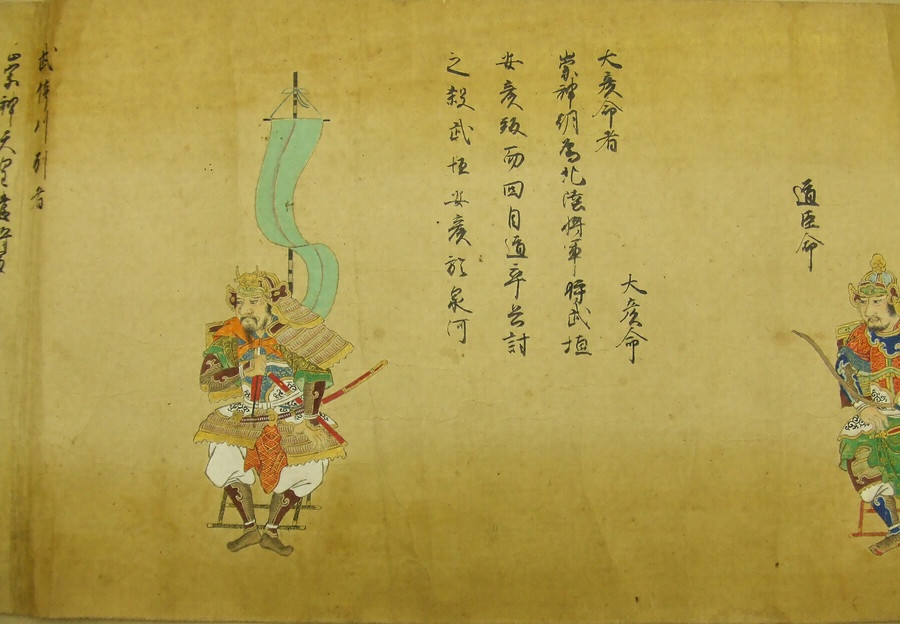 道臣命
大彦命
大彦命者
崇神朝為北陸将軍時武埴
安彦叛而四目道卒兵討
之殺武埴安彦於泉河
武停川別者
崇神天皇